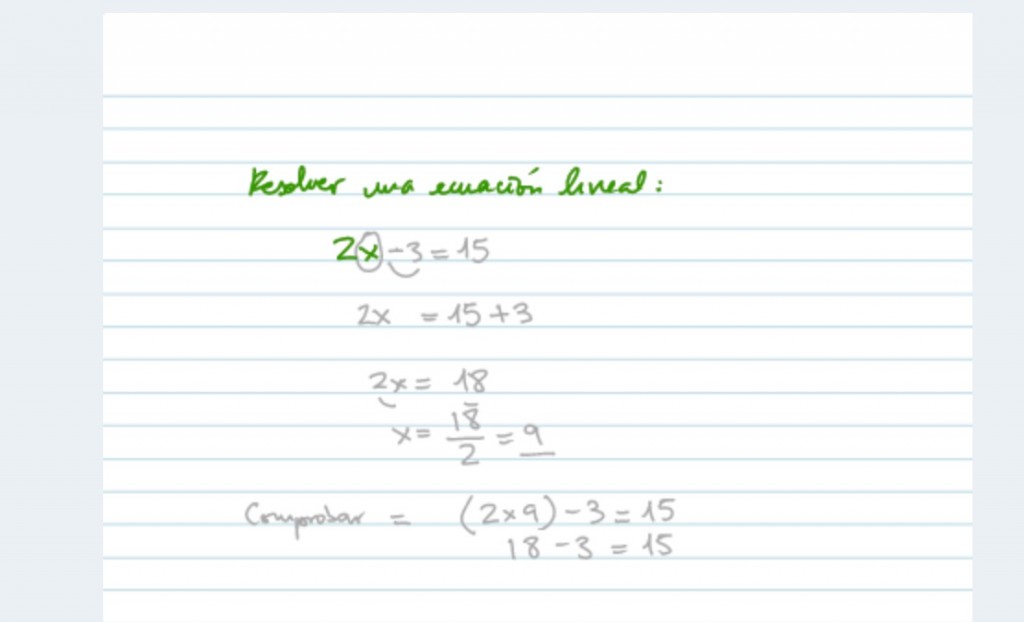 Resolver una ecuación lineal:
2x - 3 = 15
2x = 15 + 3
2x = 18
x = 18/2 = 9
Comprobar = (2×9) - 3 = 15
18 - 3 = 15